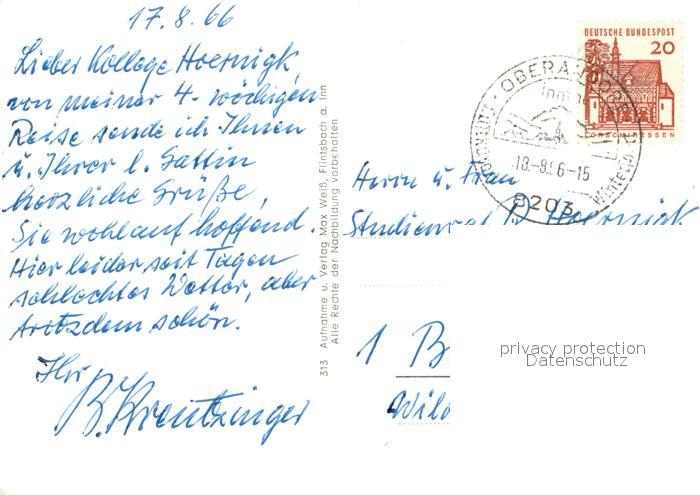 17.8.66
Lieber Kollege Hoernigk,
von meiner 4-wöchigen
Reise sende ich Ihnen
u. Ihrer l. Gattin
herzliche Grüße,
Sie wohlauf hoffend.
Hier leider seit Tagen
schlechtes Wetter, aber
trotzdem schön.
Ihr
B. Kreutzinger
313 Aufnahme u. Verlag Max Weiß, Flintsbach a. Inn
Alle Rechte der Nachbildung vorbehalten
DEUTSCHE BUNDESPOST
20
LORSCH/HESSEN
OBERAUDORF
18.-8.66-15
8203
Herrn u. Frau
Studienrat Hoernigk
1 B
Wild
privacy protection
Datenschutz